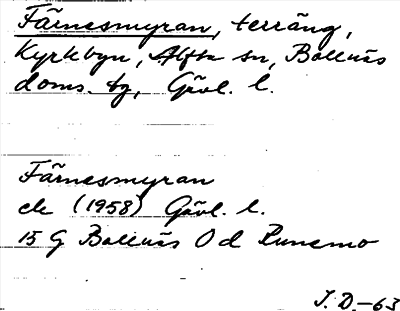 Färnesmyran, terräng,
Kyrkbyn, Alfta sn, Bollnäs
doms. tg, Gävl. l.
Färnesmyran
ek (1958) Gävl. l.
15 G Bollnäs O d Runemo
J. D. -63